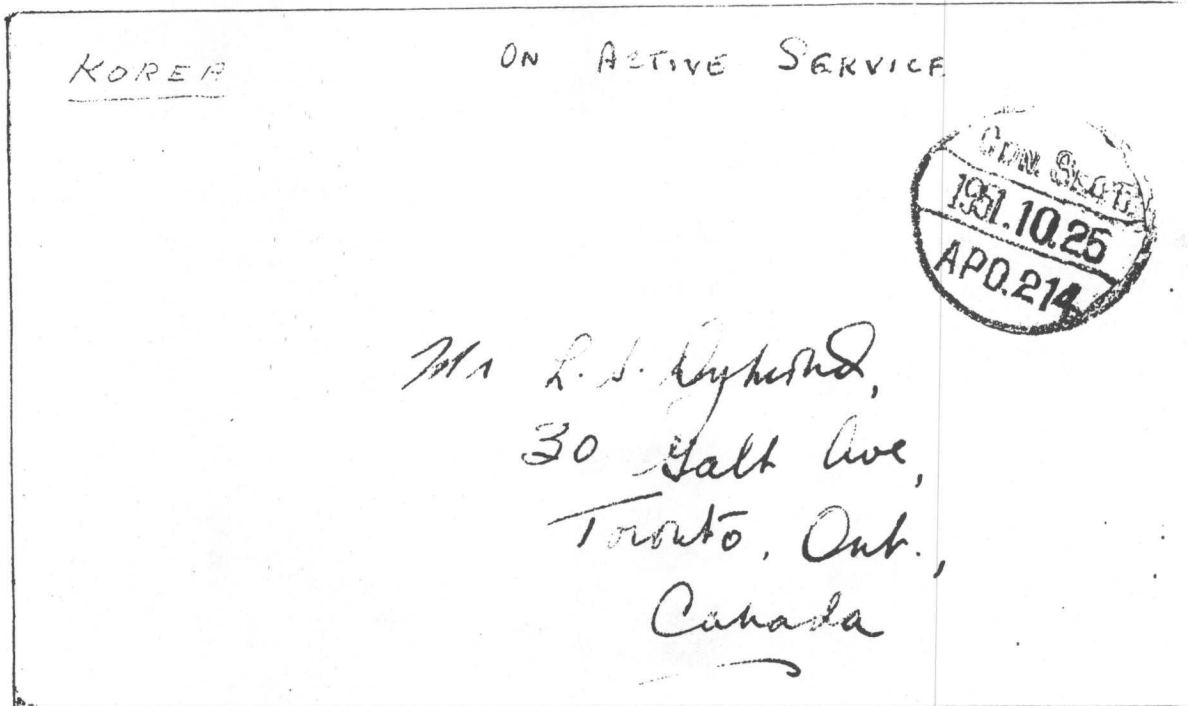 KOREA
ON ACTIVE SERVICE
CDN. SECT.
1951.10.25
APO.214
Mr L. S. Dymond,
30 Galt Ave,
Toronto, Ont.,
Canada